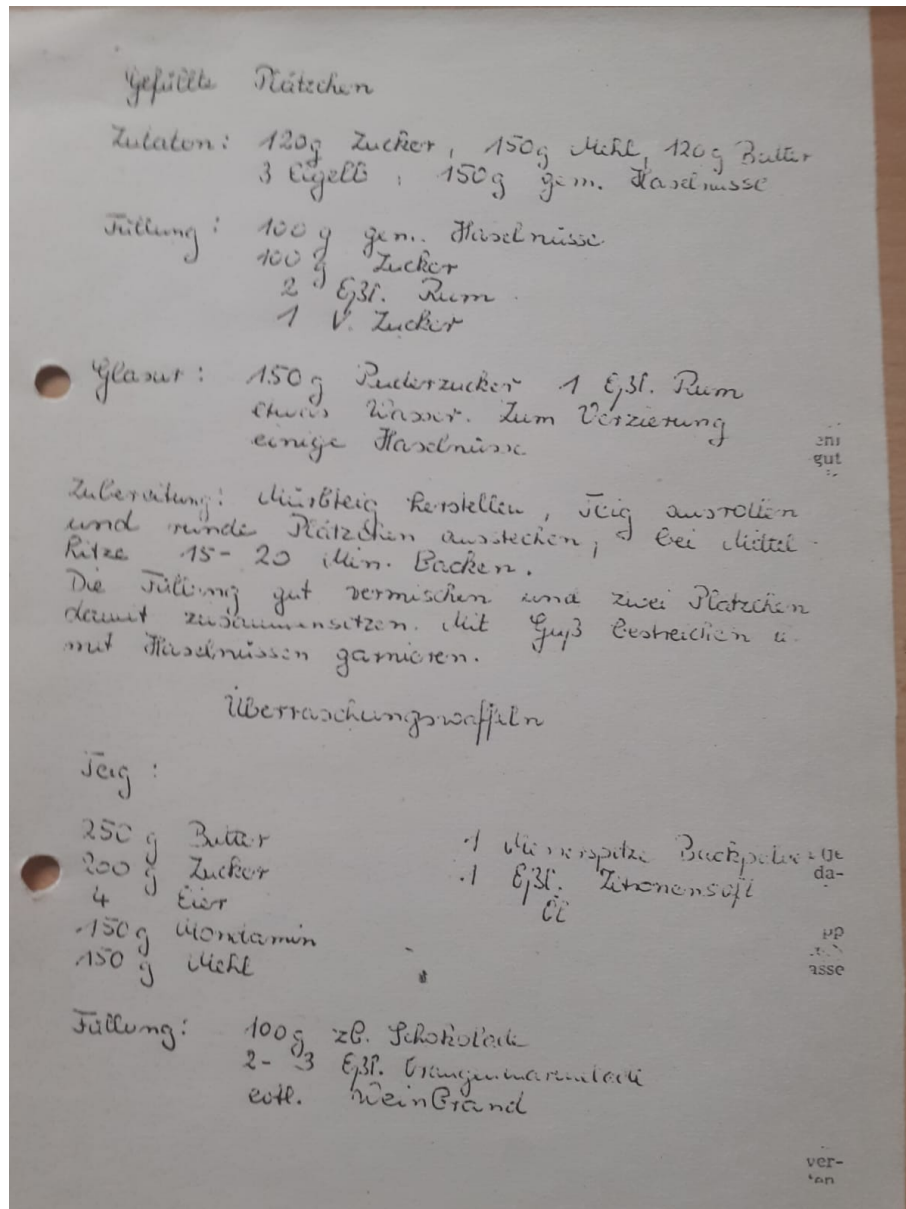 Gefüllte Plätzchen
Zutaten: 120g Zucker, 150g Mehl, 120g Butter
3 Eigelb, 150g gem. Haselnüsse
Füllung: 100 g gem. Haselnüsse
100 g Zucker
2 Eßl. Rum
1 V. Zucker
Glasur: 150g Puderzucker 1 Eßl. Rum
etwas Wasser. Zum Verzierung
einige Haselnüsse
gut
Zubereitung: Mürbteig herstellen, Teig ausrollen
und runde Plätzchen ausstechen, bei Mittel-
hitze 15-20 Min. Backen.
Die Füllung gut vermischen und zwei Plätzchen
damit zusammensetzen. Mit Guß bestreichen u.
mit Haselnüssen garnieren.
Überraschungswaffeln
Teig:
250 g Butter
200 g Zucker
4 Eier
150g Mondamin
150 g Mehl
1 Messerspitze Backpulver
1 Eßl. Zitronensaft
Öl
da-
asse
Füllung: 100g zb. Schokolade
2-3 Eßl. Orangenmarmelade
evtl. Weinbrand
ver-